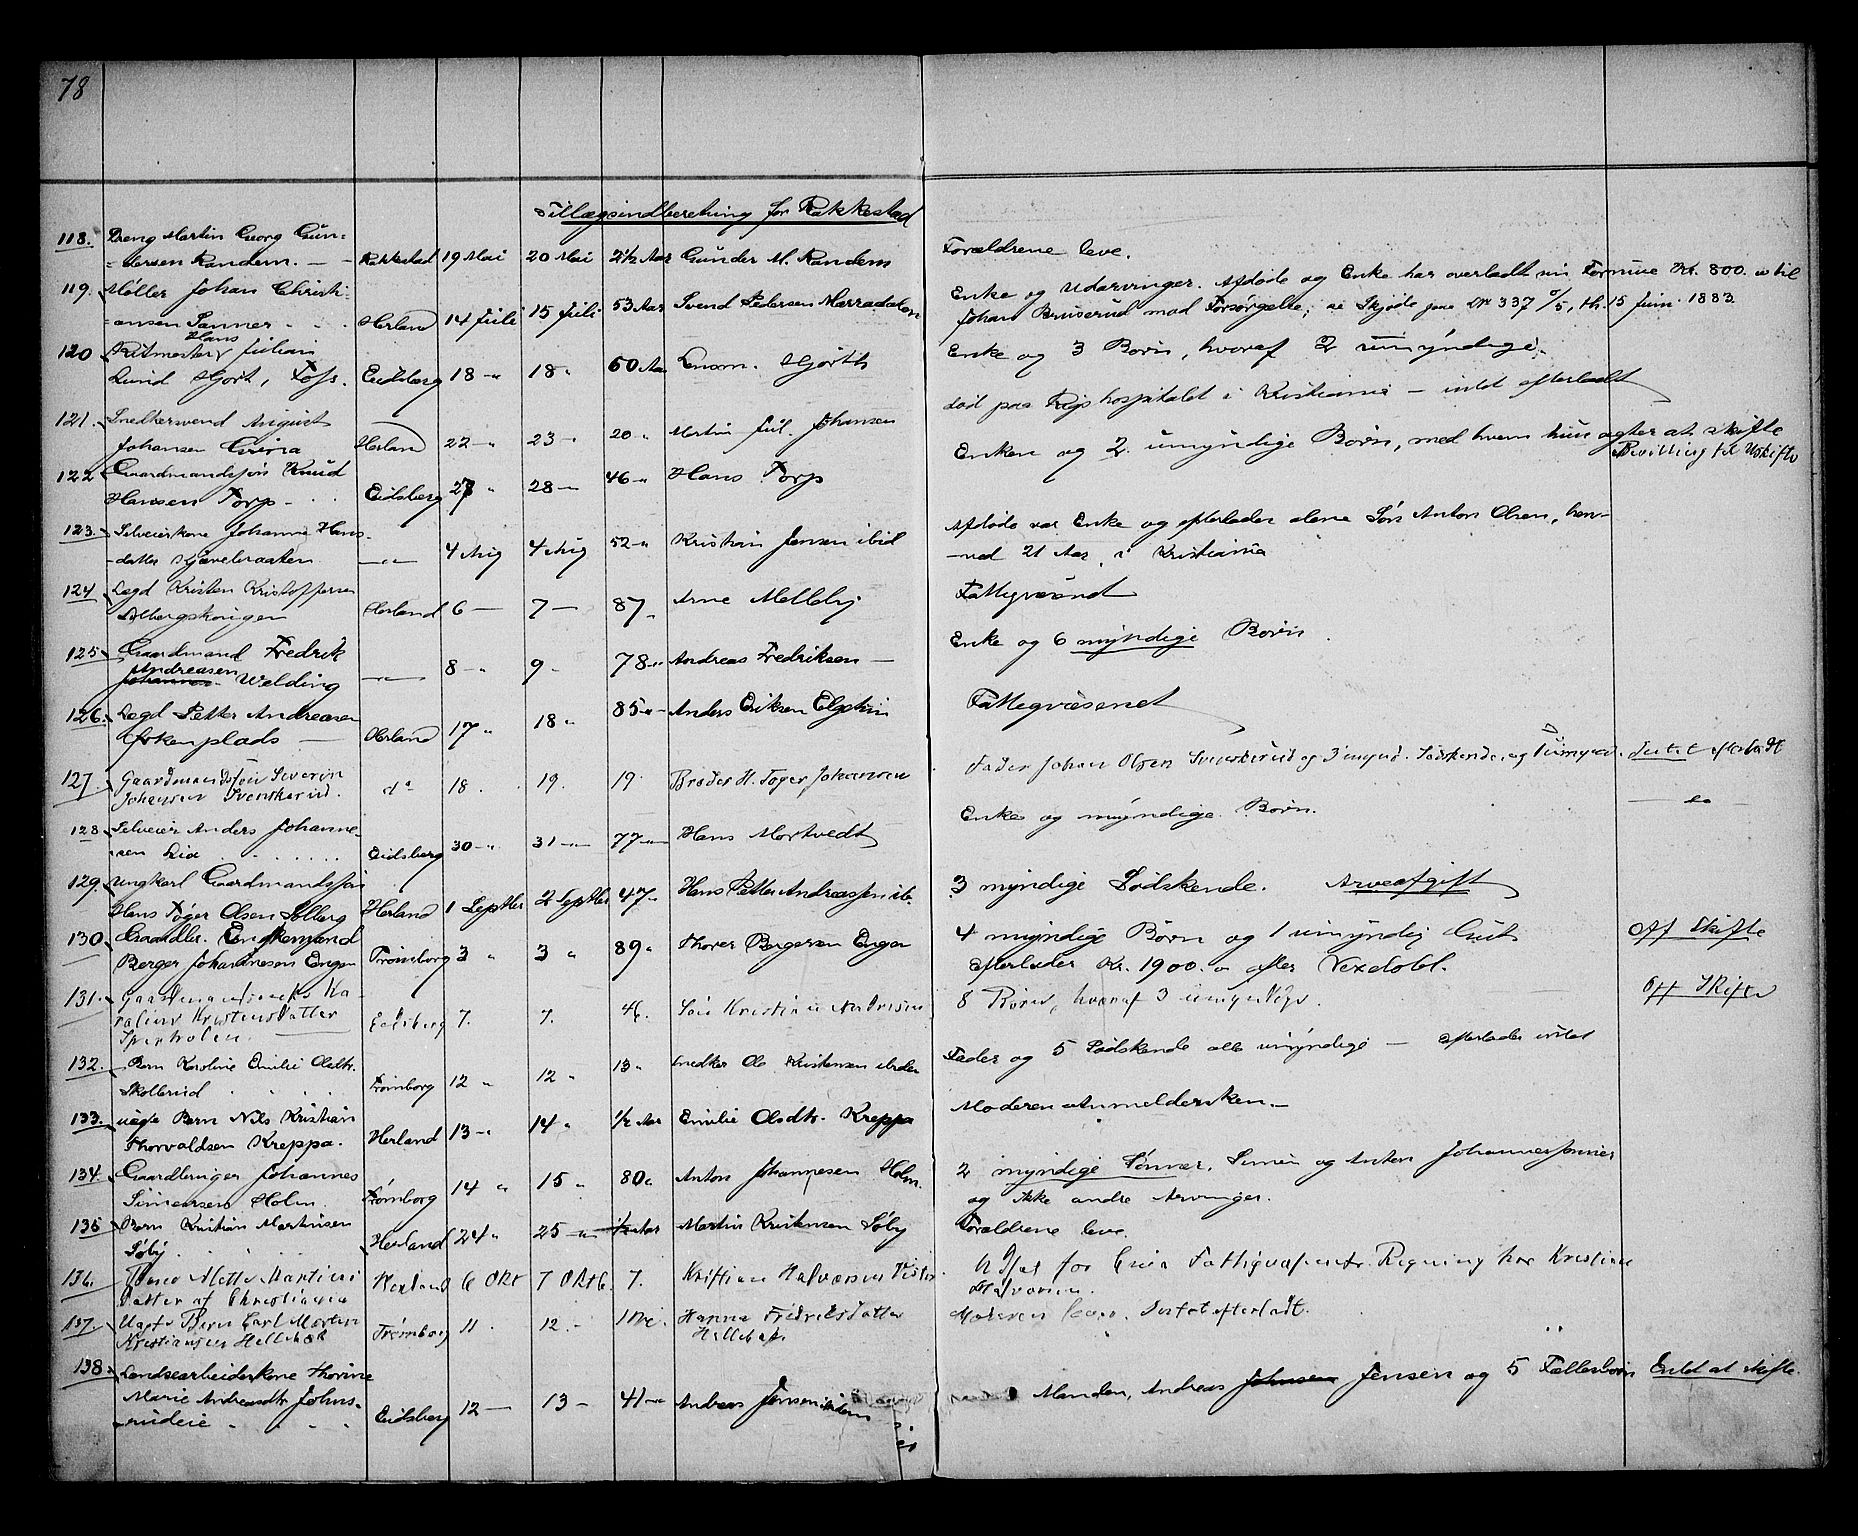 78
Tillægsindberetning for Rakkestad
118. Dreng Martin Georg Gun=
=dersen Kandem. — Rakkestad 19 Mai 20 Mai 2½ Aar Gunder M. Kandem Forældrene leve.
119. Møller Johan Christi=
=ansen Sanner Herland 14 Juli 15 Juli 53 Aar Svend Pedersen Marradalen Enke og Udarvinger. Afdøde og Enke har overladt sin Formue Kr. 800. til
Johan Bruserud mod Forsørgelse; se Skjøde 15 Juni 1883
120 Ritmester Hans Julian
Lund Hjort, Foss. Eidsberg 18 - 18 - 60 Aar Hjorth Enke og 3 Børn, hvoraf 2 umyndige.
121. Snedkersvend August
Johansen Herland 22 - 23 - 20 - Martin Jul. Johansen død paa Rigshospitalet i Kristiania — intet efterladt
122 Gaardmandssøn Knud
Hansen Torp Eidsberg 27 - 28 - 46 - Hans Torp Enken og 2 umyndige Børn, med hvem hun agter at skifte
Bevilling til Uskifte
123. Selveierkone Johanne Hans-
datter —"— 4 Aug 4 Aug 52 - Kristian Jensen ibid Afdøde var Enke og efterlader alene Søn Anton Olsen, hen-
-ved 21 Aar, i Kristiania
124 Lægd Kristen Kristoffersen
Herland 6 — 7 — 87 - Arne Melleby Fattigvæsenet
125 Gaardmand Fredrik
Andreasen Welding —"— 8 - 9 - 78 - Andreas Fredriksen — Enke og 6 myndige Børn.
126. Lægd Petter Andreasen
plads — Herland 17 - 18 - 85 - Anders Eriksen Elgetun Fattigvæsenet
127. Gaardmandssøn Severin
Johansen Svenskerud. do 18. 19. 19. Broder H. Toger Johansen Fader Johan Olsen Svenskerud og 3 mynd. Sødskende og umynd. Intet efterladt
128 Selveier Anders Johanne-
sen Lia Eidsberg 30 - 31 - 77 - Hans Mortvedt Enke og myndige Børn. — do —
129. Ungkarl Gaardmandssøn
Hans Tøger Olsen Solberg Herland 1 Septber 2 Septber 47 - Hans Petter Andreassen ib. 3 myndige Sødskende. Arveafgift
130. Gaardbr. Enkemand
Berger Johannesen Enger Trømborg 3 - 3 - 89 - Thorer Bergersen Enger 4 myndige Børn og 1 umyndig Gut Off Skifte
efterlader Kr. 1900. - efter
131. Ka-
roline Kristensdatter
Eidsberg 7. 7. 46. Søn Kristian Andresen 8 Børn, hvoraf 3 umyndige. Off Skifte
132. Barn Karoline Emilie Olsdtr.
Skollerud Trømborg 12 - 12 - 13 - Snedker Ole Kristensen ibidem Fader og 5 Sødskende alle umyndige — efterlader intet
133. uægte Barn Nils Kristian
Thorvaldsen Kreppa. Herland 13 - 14 - ½ Aar Emilie Olsdtr. Kreppa Moderen Anmeldersken. —
134. Gaardbruger Johannes
Simensen Holm Trømborg 14 - 15 - 80 - Anton Johannesen Holm. 2 myndige Sønner, Simen og Anton Johannessønner
og ikke andre Arvinger.
135 Barn Kristian Martinsen
Søby Herland 24 - 25 - ½ Aar Martin Kristensen Søby Forældrene leve.
136. Mette Martini
Datter af Christiania Herland 6 Okt 7 Oktb. 7. Kristian Halvorsen for Fattigvæsenets Regning hos Kristian
Halvorsen.
137. Uægte Barn Carl Morten
Kristiansen Trømborg 11. 12. - Hanna Fredriksdatter
Moderen lever. Intet efterladt.
138. Landsearbeiderkone Thorine
Marie Andreasdtr Johns-
=rudeie Eidsberg 12 — 13 - 41 - Andreas Jensen ibidem Manden, Andreas Johnsen Jensen og 5 Fællesbørn Enld at skifte.